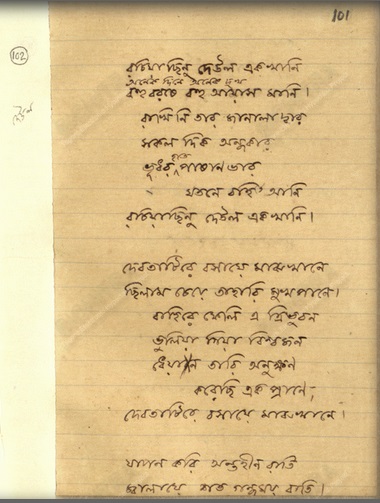 101
102
দেউল
রচিয়াছিনু দেউল একখানি
অনেক দিনে অনেক দুখ
বহু বরষে বহু আয়াস মানি।
রাখিনি তার জানালা দ্বার
সকল দিক অন্ধকার
ভূধর হতে পাষাণভার
যতনে বহি আনি
রচিয়াছিনু দেউল একখানি।
দেবতাটিরে বসায়ে মাঝখানে
ছিলাম চেয়ে তাহারি মুখপানে।
বাহিরে ফেলি এ ত্রিভুবন
ভুলিয়া গিয়া বিশ্বজন
ধেয়ান তারি অনুক্ষণ
করেছি এক প্রাণে,
দেবতাটিরে বসায়ে মাঝখানে।
যাপন করি অন্তহীন রাতি
জ্বালায়ে শত গন্ধময় বাতি।